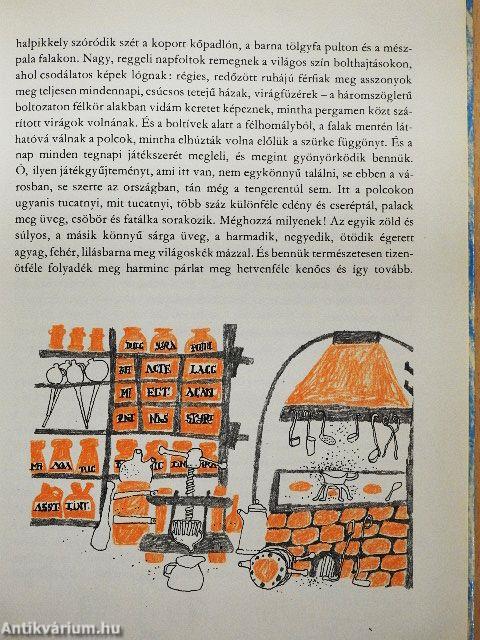 halpikkely szóródik szét a kopott kőpadlón, a barna tölgyfa pulton és a mész-
pala falakon. Nagy, reggeli napfoltok remegnek a világos szín bolthajtásokon,
ahol csodálatos képek lógnak: régies, redőzött ruhájú férfiak meg asszonyok
meg teljesen mindennapi, csúcsos tetejű házak, virágfüzérek – a háromszögletű
boltozaton félkör alakban vidám keretet képeznek, mintha pergamen közt szá-
rított virágok volnának. És a boltívek alatt a félhomályból, a falak mentén lát-
hatóvá válnak a polcok, mintha elhúzták volna előlük a szürke függönyt. És a
nap minden tegnapi játékszerét megleli, és megint gyönyörködik bennük.
Ó, ilyen játékgyűjteményt, ami itt van, nem egykönnyű találni, se ebben a vá-
rosban, se szerte az országban, tán még a tengerentúl sem. Itt a polcokon
ugyanis tucatnyi, mit tucatnyi, több száz különféle edény és cseréptál, palack
meg üveg, csöbör és fatálka sorakozik. Méghozzá milyenek! Az egyik zöld és
súlyos, a másik könnyű sárga üveg, a harmadik, negyedik, ötödik égetett
agyag, fehér, lilásbarna meg világoskék mázzal. És bennük természetesen tizen-
ötféle folyadék meg harminc párlat meg hetvenféle kenőcs és így tovább.
ACTE LACC
MI EGT
Antikvárium.hu